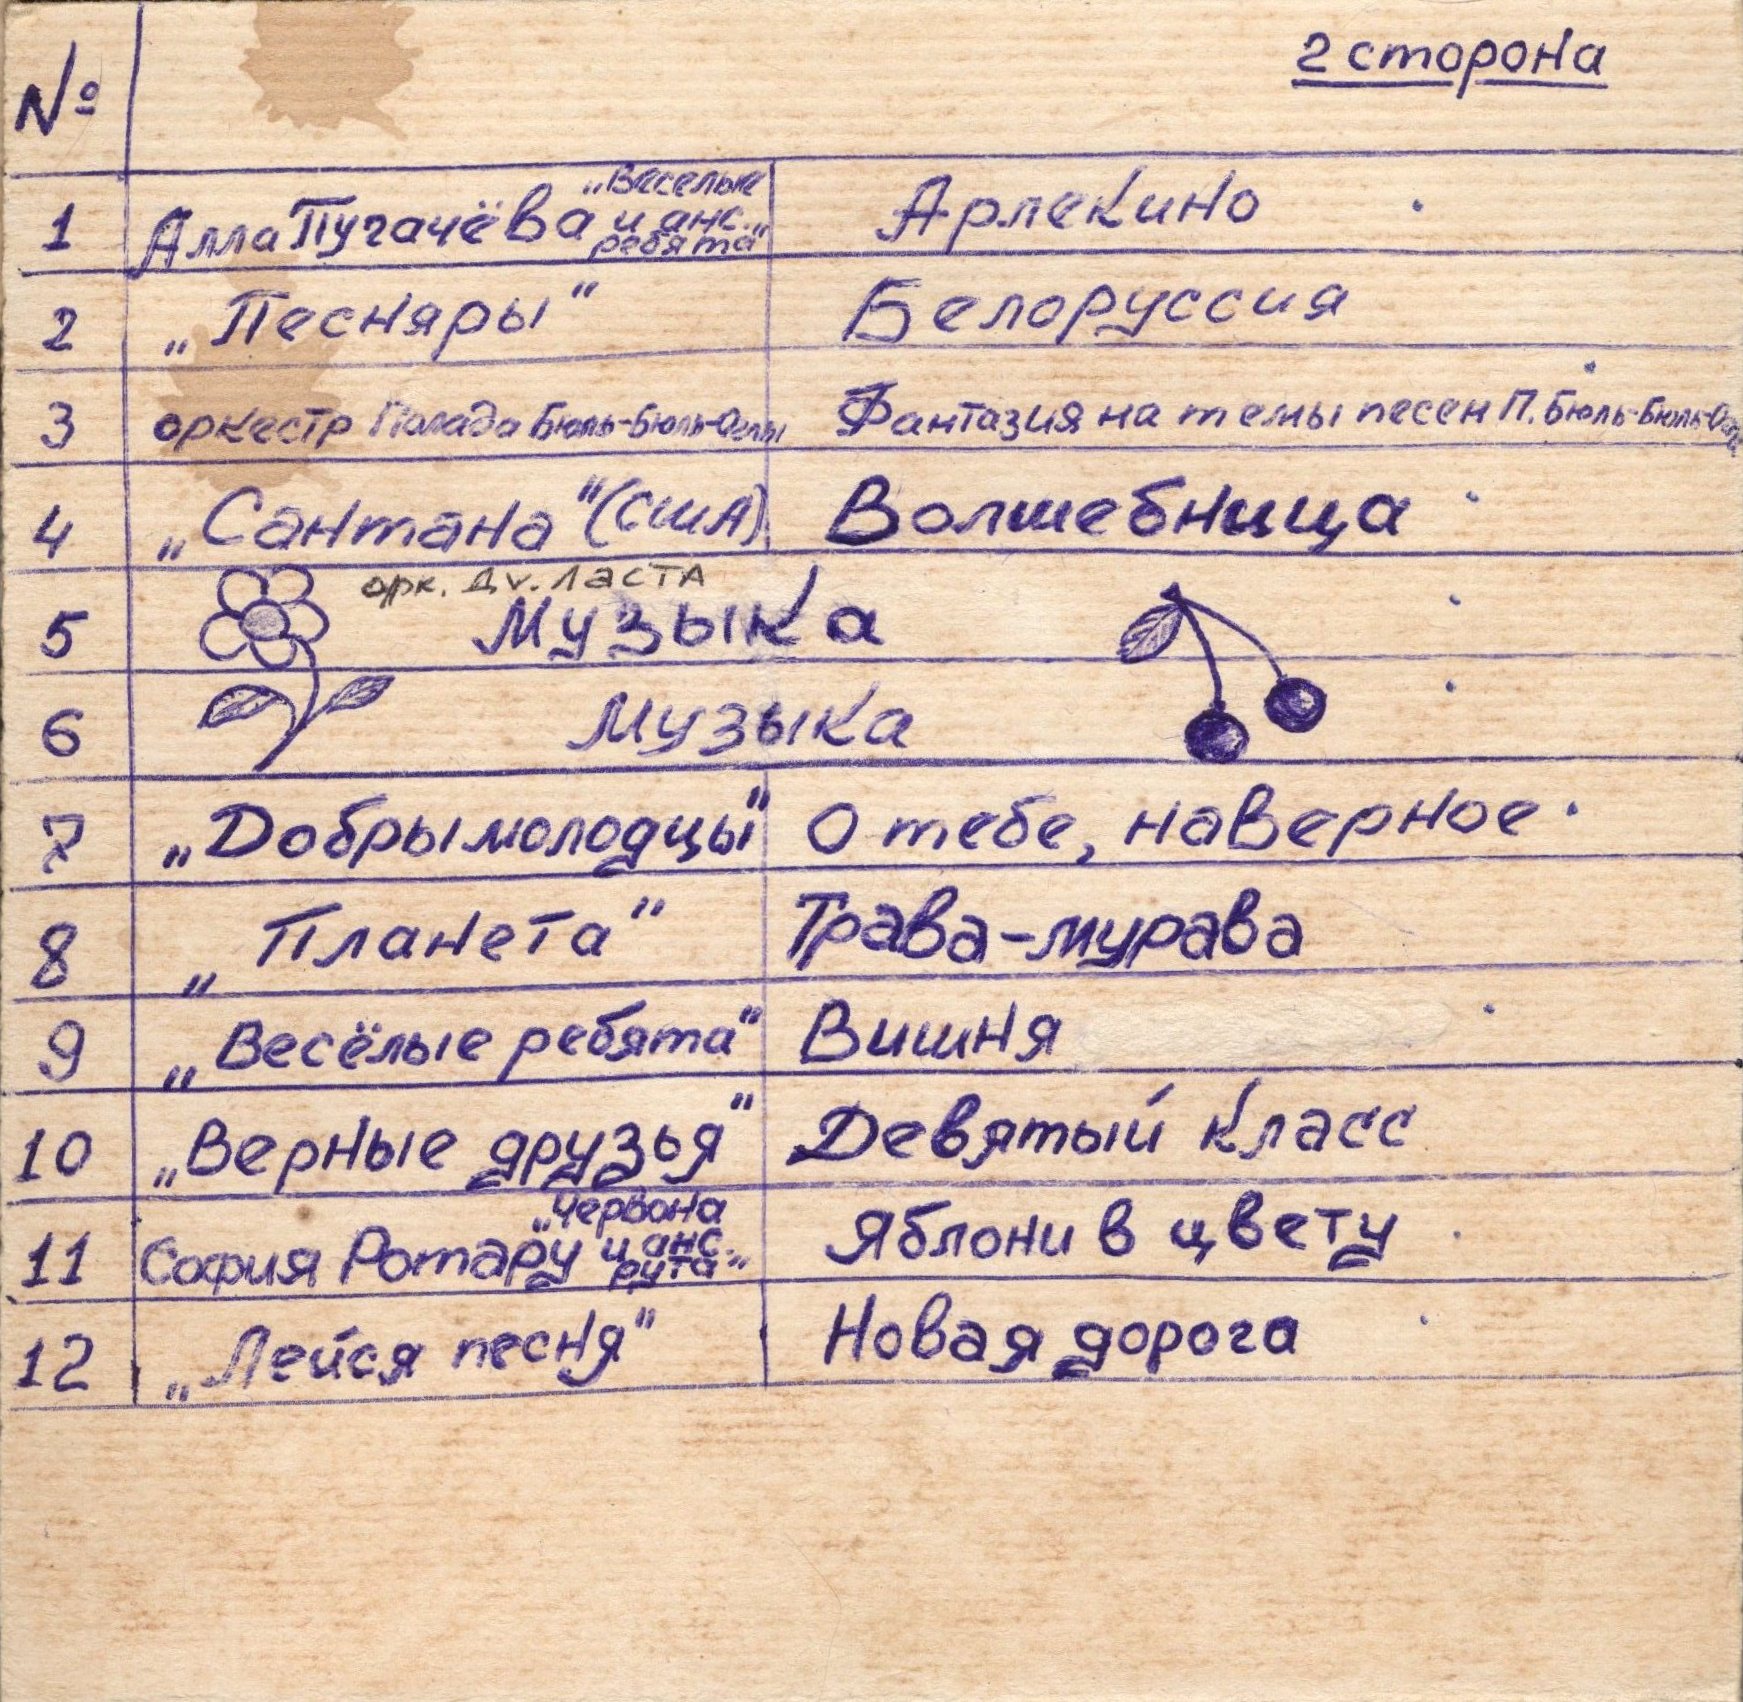 2 сторона
№
1 Алла Пугачёва и анс. „Веселые ребята“ Арлекино
2 „Песняры“ Белоруссия
3 оркестр Полада Бюль-Бюль-Оглы Фантазия на темы песен П. Бюль-Бюль-Оглы
4 „Сантана“ (США) Волшебница
орк. Дж. Ласта
5 Музыка
6 Музыка
7 „Добры молодцы“ О тебе, наверное
8 „Планета“ Трава-мурава
9 „Весёлые ребята“ Вишня
10 „Верные друзья“ Девятый класс
11 София Ротару и анс. „Червона рута“ Яблони в цвету
12 „Лейся песня“ Новая дорога